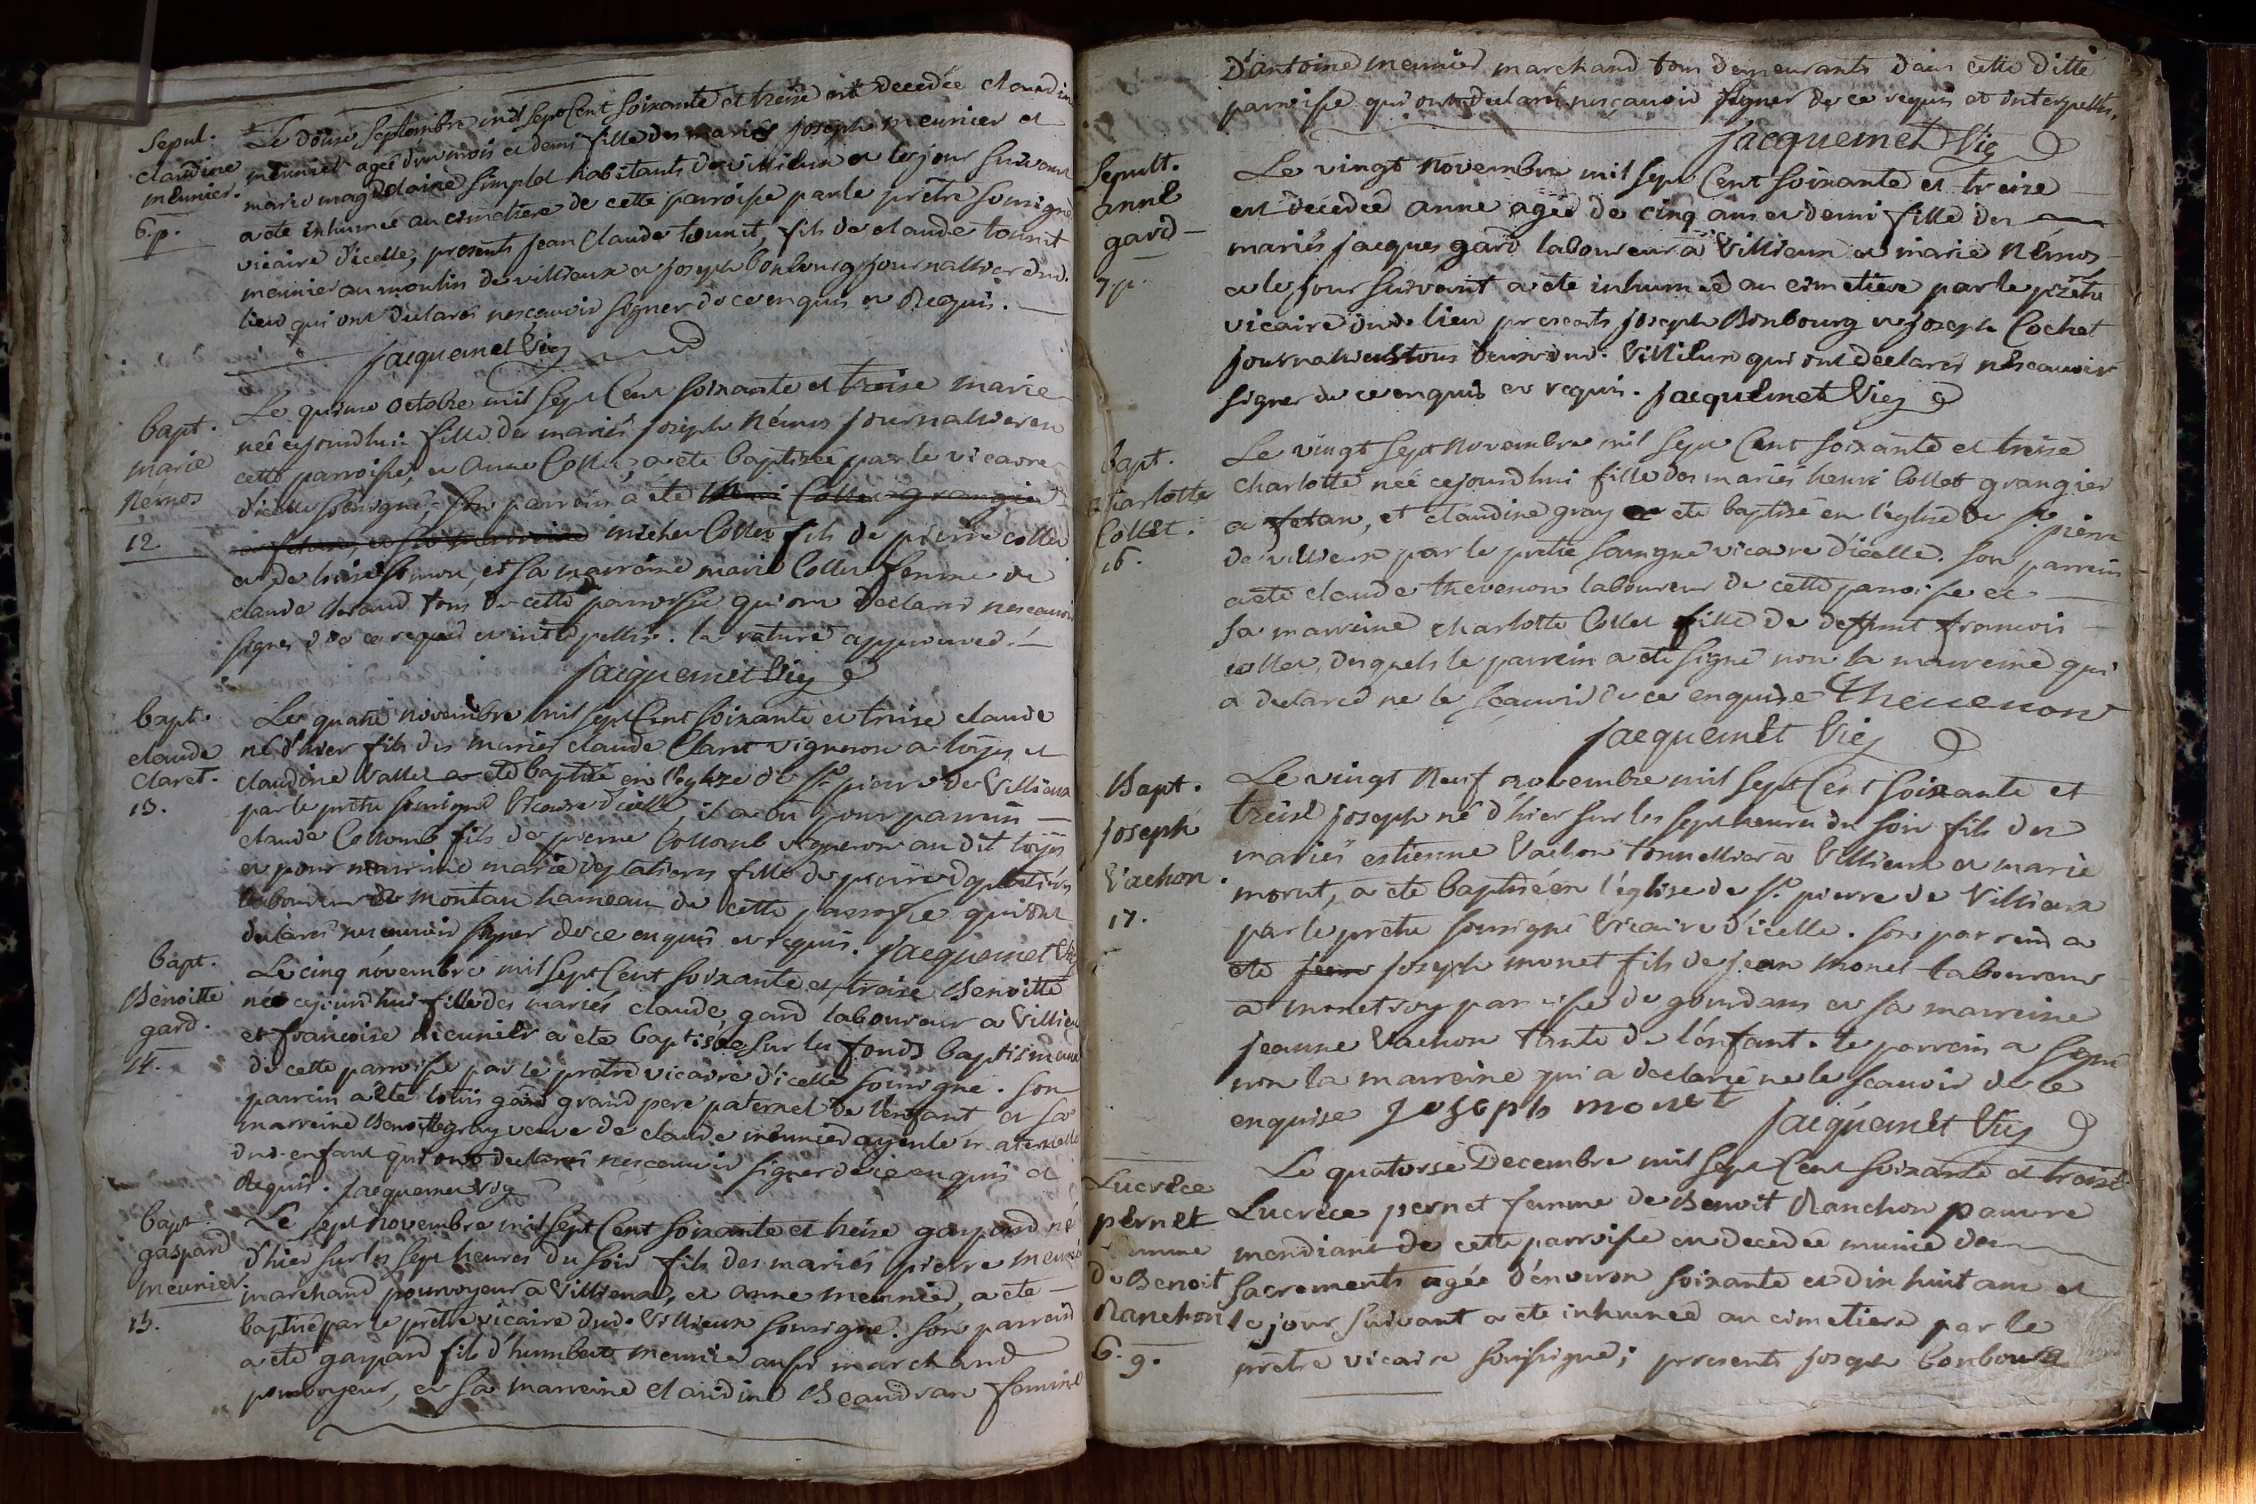 Sepul.
claudine
meunier.
6. p.
Le douse septembre mil sept Cent soixante et treise est decedée claudine
meunier agée d'un mois et demi fille des mariés joseph meunier et
marie magdelaine simplet habitants de villieux et le jour suivant
a eté inhumée au cimetiere de cette parroisse par le prêtre soussigné
vicaire d'icelle, presents jean Claude tounit, fils de claude tounit
meunier au moulin de villieux et joseph bonbourg journallier dud.
lieu qui ont declarés nesçavoir signer de ce enquis et Requis.
jacquemet Vic
bapt.
marie
Némos
12
Le quinse octobre mil sept Cent soixante et treise marie
neé cejourdhui fille des mariés joseph Némos journallier en
cette parroisse, et Anne Collet, a eté baptisée par le vicaire
d'icelle soussigné, son parrain a été
michel Collet fils de pierre collet
et de et sa marraine marie Collet femme de
claude tous de cette parroisse qui ont declarés nescavoir
signer de ce requis et interpellés. la rature approuvée.
jacquemet Vic
bapt.
claude
claret.
13.
Le quatre novembre mil sept Cent soixante et treise claude
né d'hier fils des mariés claude Claret vigneron a loyes et
claudine Vallet a eté baptisé en l'eglise de St pierre de Villieux
par le prêtre soussigné Vicaire d'icelle, il a eu pour parrain
claude Collomb fils de pierre Collomb vigneron au dit loyes
et pour marraine marie fille de pierre
laboureur de montau hameau de cette parroisse qui ont
declarés nescavoir signer de ce enquis et requis. jacquemet Vic
bapt.
Benoitte
gard.
14.
Le cinq novembre mil sept Cent soixante et treise Benoitte
née cejourdhui fille des mariés claude gard laboureur a Villieux
et francoise meunier a eté baptisée sur les fonds baptismaux
de cette parroisse par le prêtre vicaire d'icelle soussigné. son
parrein a été louis gard grand pere paternel de l'enfant et sa
marreine Benoitte gray veuve de claude meunier ayeule maternelle
dud. enfant qui ont declarés nesçavoir signer de ce enquis et
Requis. jacquemet Vic
bapt.
gaspard
meunier
15.
Le sept novembre mil sept Cent soixante et treise gaspard né
d'hier sur les sept heures du soir fils des mariés pierre meunier
marchand pourvoyeur a Villieux, et anne meunier, a eté
baptisé par le prêtre vicaire dud. Villieux soussigné. son parrein
a eté gaspard fils d'humbert meunier aussi marchand
pourvoyeur, et sa marreine claudine Beaudran femme
D'antoine meunier marchand tous demeurants dans cette ditte
parroisse qui ont declarés nesçavoir signer de ce requis et interpellés.
jacquemet Vic
Sepult.
anne
gard
7. p.
Le vingt Novembre mil sept Cent soixante et treise
est décedée anne agée de cinq ans et demi fille des
mariés jacques gard laboureur a Villieux et marie Némos
et le jour suivant a été inhumée au cimetiere par le prêtre
vicaire dud. lieu presents joseph Bonbourg et joseph Cochet
journalliers tous deux dud. Villieux qui ont déclarés nescavoir
signer de ce enquis et requis. jacquemet Vic
bapt.
charlotte
Collet.
16.
Le vingt sept Novembre mil sept Cent soixante et treise
charlotte neé cejourdhui fille des mariés henri Collet grangier
a fetan, et claudine gray a eté baptisé en l'église de St. pierre
de villieux par le prêtre soussigné vicaire d'icelle. son parrein
a eté claude thevenon laboureur de cette parroisse et
sa marreine charlotte Collet fille de deffunt francois
collet, desquels le parrein a eté signé non la marreine qui
a declaré ne le sçavoir de ce enquise Thevenon
jacquemet Vic
Bapt.
joseph
Vachon.
17.
Le vingt Neuf novembre mil sept Cent soixante et
treise joseph né d'hier sur les sept heures du soir fils des
mariés estienne Vachon tonnellier a Villieux et marie
morut, a eté baptisé en l'église de St. pierre de Villieux
par le prêtre soussigné Vicaire d'icelle. son parrein a
eté jean joseph monet fils de jean monet laboureur
a monetroy parroisse de gourdans et sa marreine
jeanne Vachon tante de l'enfant. le parrein a signé
non la marreine qui a declaré ne le scavoir de ce
enquise joseph monet
jacquemet Vic
Lucrece
pernet
femme
de Benoit
Ranchon
6. 9.
Le quatorse Decembre mil sept Cent soixante et treise
Lucrece pernet femme de Benoit Ranchon pauvre
mendiant de cette parroisse est decedée munie des
sacrements agée d'environ soixante et dix huit ans et
le jour suivant a eté inhumée au cimetiere par le
prêtre vicaire soussigné; presents joseph bonbourg